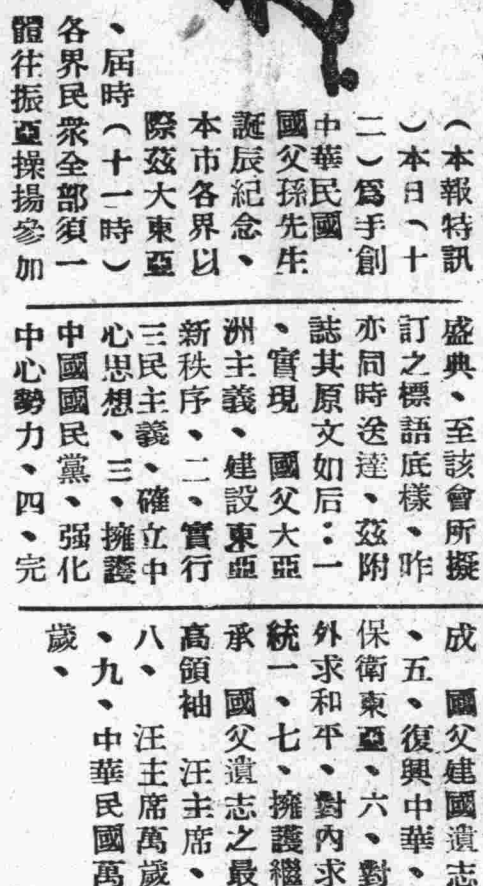 （本報特訊
）本日（十
二）爲手創
中華民國
國父孫先生
誕辰紀念、
本市各界以
際茲大東亞
、屆時（十一時）
各界民衆全部須一
體往振亞操揚參加
盛典、至該會所擬
訂之標語底樣、昨
亦同時送達、茲附
誌其原文如后：一
、實現　國父大亞
洲主義、建設東亞
新秩序、二、實行
三民主義、確立中
心思想、三、擁護
中國國民黨、强化
中心勢力、四、完
成　國父建國遺志
、五、復興中華、
保衛東亞、六、對
外求和平、對內求
統一、七、擁護繼
承　國父遺志之最
高領袖　汪主席、
八、　汪主席萬歲
、九、中華民國萬
歲、